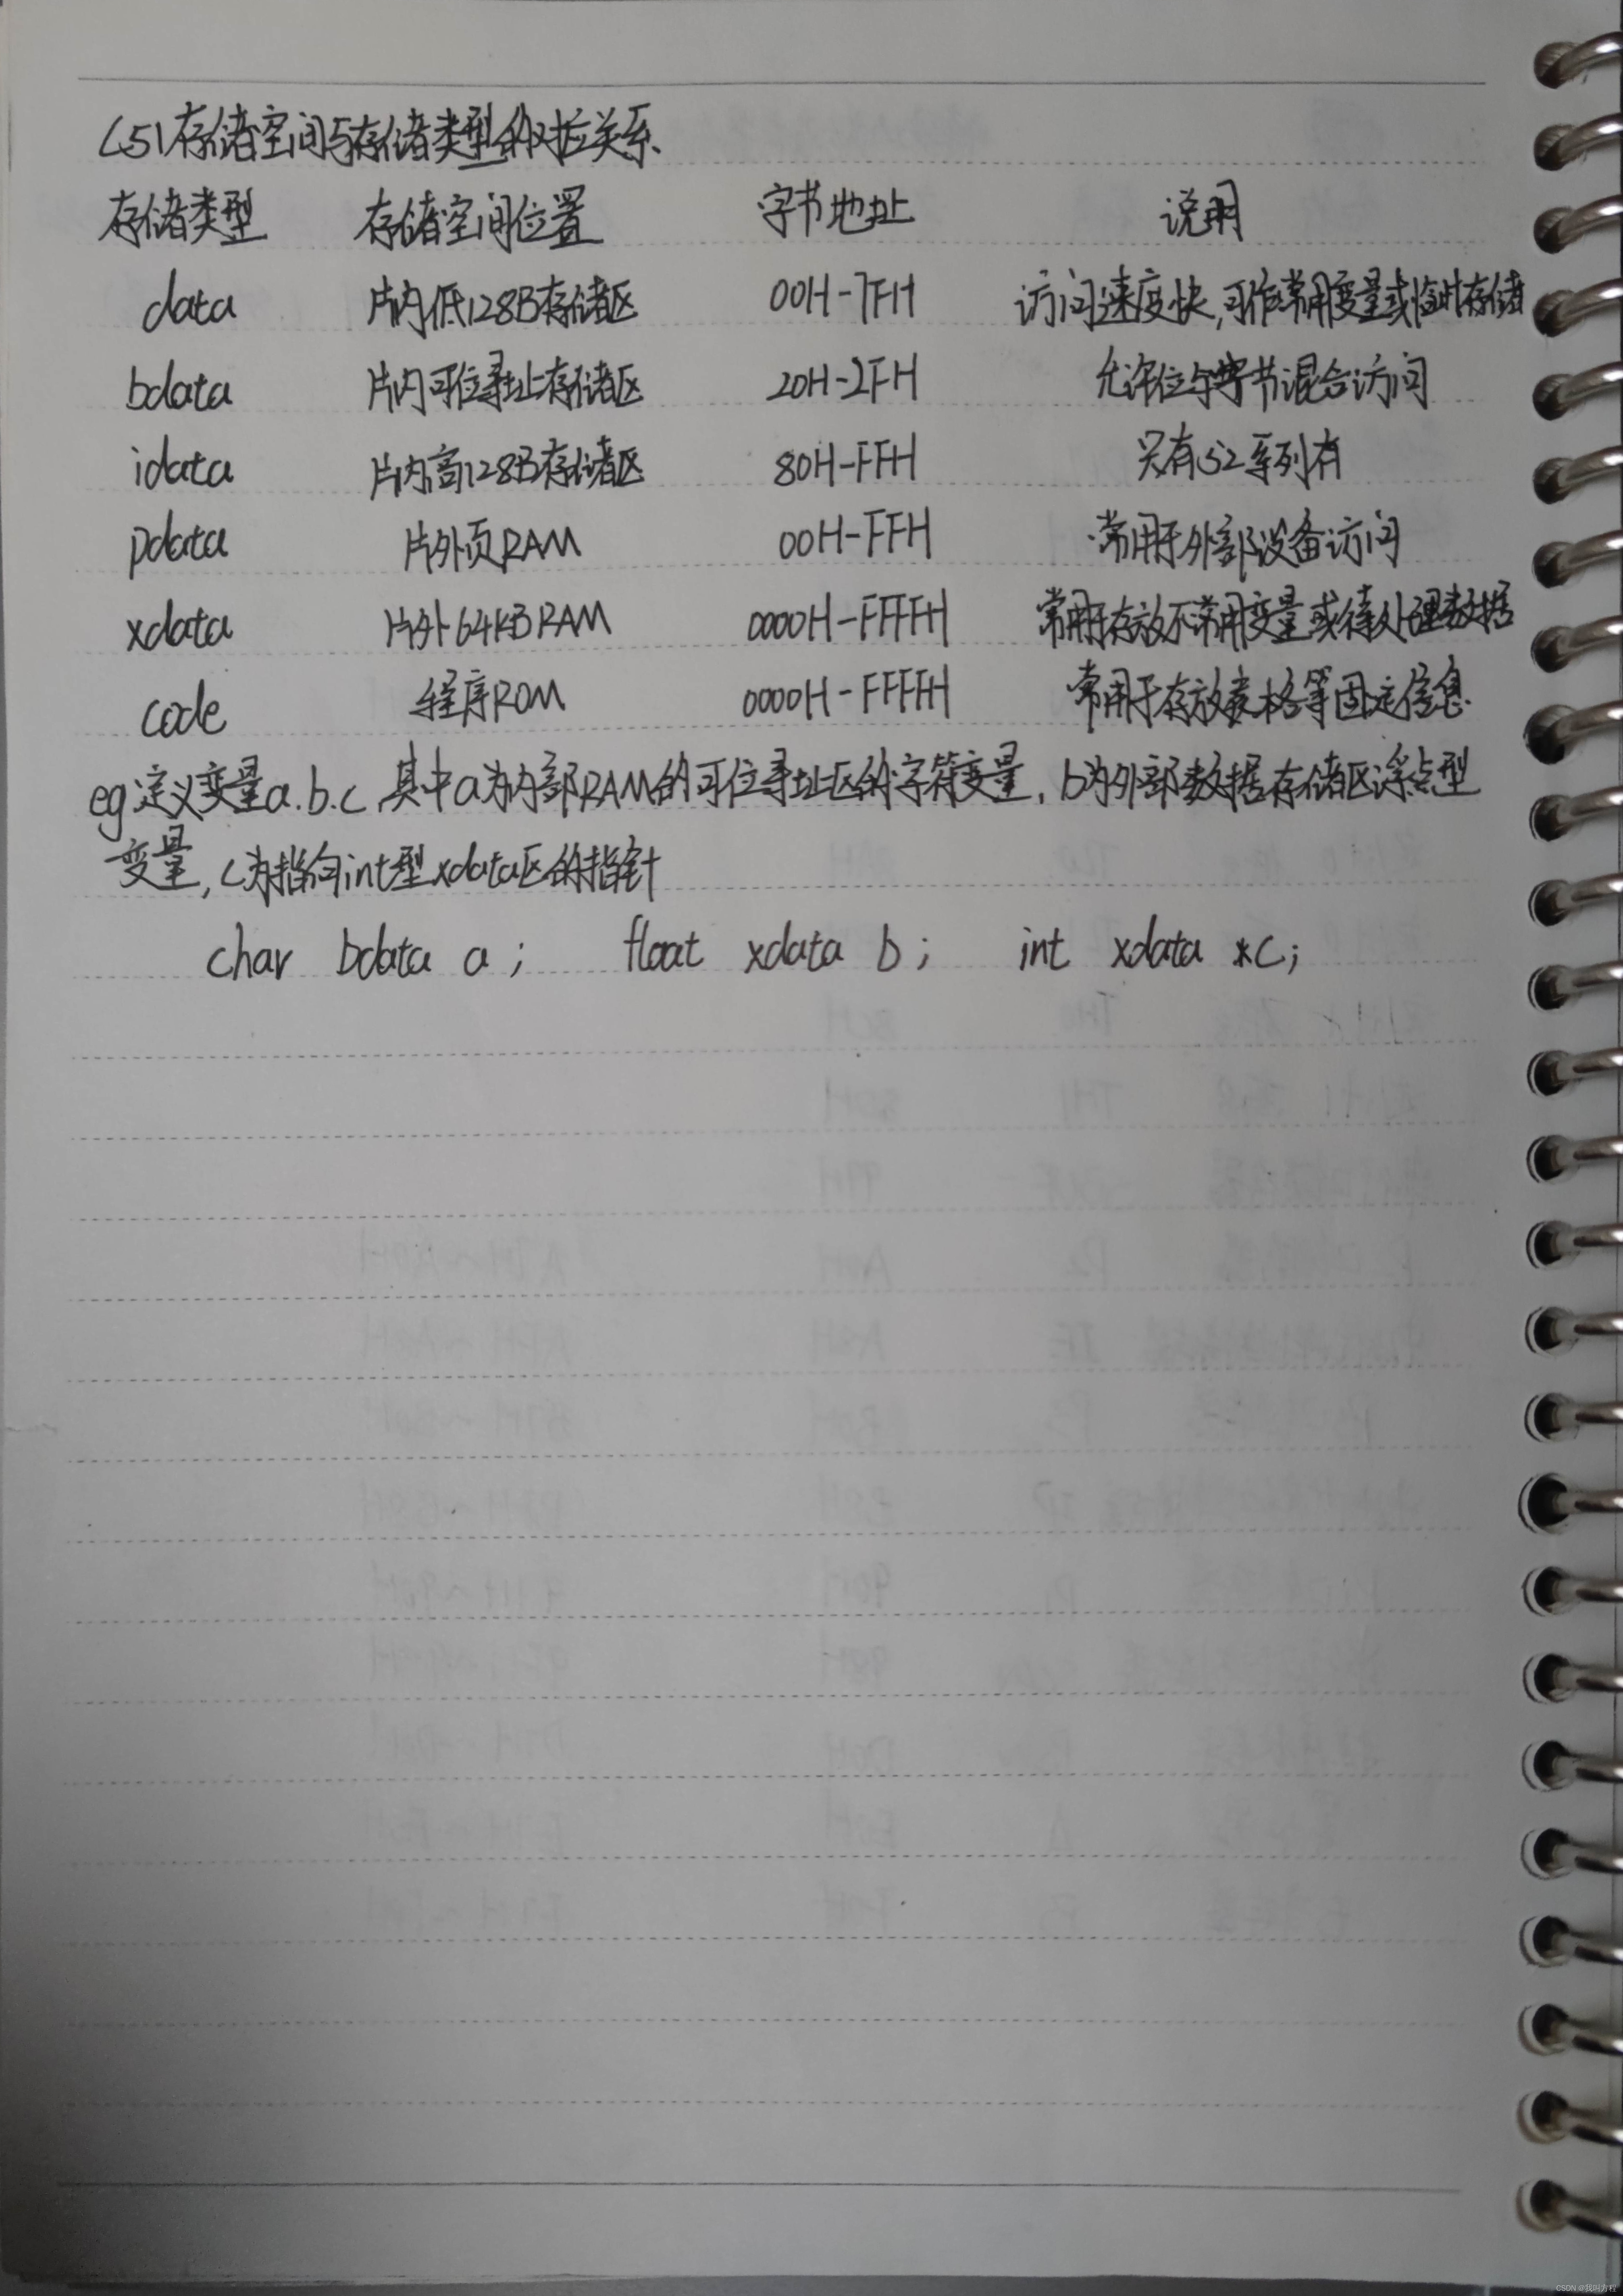 C51存储空间与存储类型的对应关系
存储类型 存储空间位置 字节地址 说明
data 片内低128B存储区 00H-7FH 访问速度快,可作常用变量或临时存储
bdata 片内可位寻址存储区 20H-2FH 允许位与字节混合访问
idata 片内高128B存储区 80H-FFH 只有52系列有
pdata 片外页RAM 00H-FFH 常用于外部设备访问
xdata 片外64KB RAM 0000H-FFFFH 常用于存放不常用变量或待处理数据
code 程序ROM 0000H-FFFFH 常用于存放表格等固定信息.
eg定义变量a.b.c,其中a为内部RAM的可位寻址区的字符变量,b为外部数据存储区浮点型
变量,c为指向int型xdata区的指针
char bdata a; float xdata b; int xdata *c;